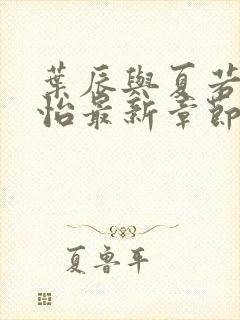 葉辰與夏若
怡最新章節
夏魯平